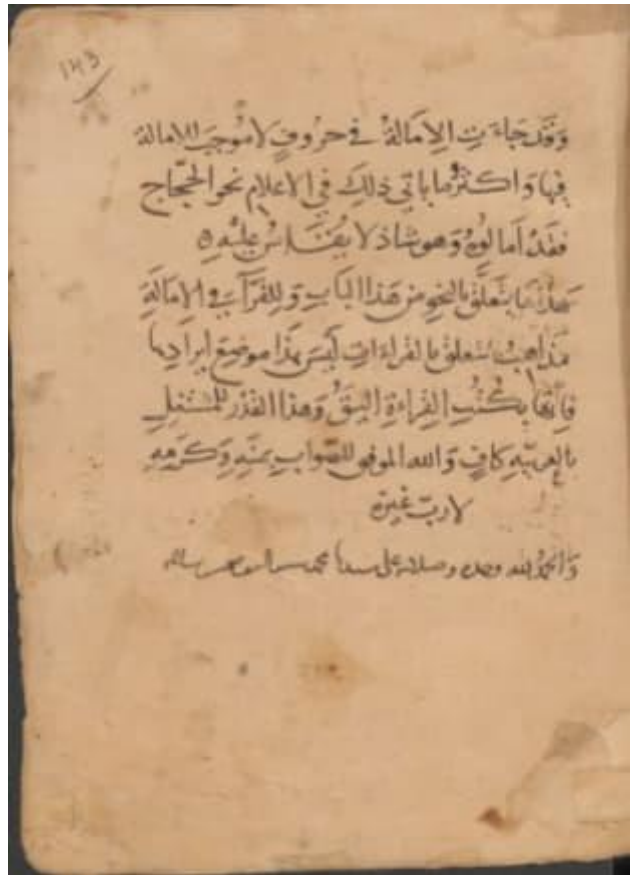 143
وَقَد جَاءَتِ الإِمَالَةُ في حروفٍ لا موجبَ للامالة
فيها وَاكثرُ ما ياتي ذلكَ في الاعلام نحو الحجّاج
فقد أمالوهُ وَهو شاذ لا يُقاسُ عليه ه
هذا ما يتعلّق بالنحو من هذا الباب وَللقرآءِ في الإمالَةِ
مذاهبُ تتعلق بالقراءاتِ ليسَ هذا موضعَ ايرادِها
فانّها بكُتُبِ القِراءةِ اليقُ وَهذا القدْر للمشتغلِ
بالعربيّةِ كافٍ وَالله الموفق للصّوابِ بمنّهِ وَكرمهِ
لا ربّ غيرُه
وَالحمدُ لله وحده وصلاته على سيدنا محمد